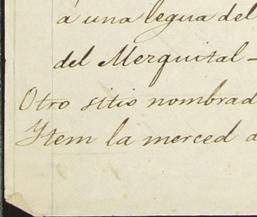 á una legua del
del Mezquital -
Otro sitio nombrad
Ytem la merced d